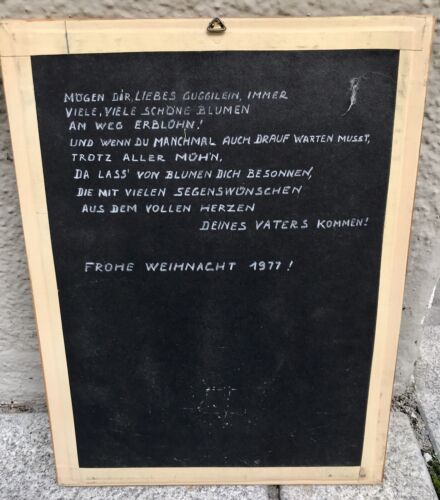 MÖGEN DIR, LIEBES GUGGILEIN, IMMER
VIELE, VIELE SCHÖNE BLUMEN
AM WEG ERBLÜHN!
UND WENN DU MANCHMAL AUCH DRAUF WARTEN MUSST,
TROTZ ALLER MÜH'N,
DA LASS' VON BLUMEN DICH BESONNEN,
DIE MIT VIELEN SEGENSWÜNSCHEN
AUS DEM VOLLEN HERZEN
DEINES VATERS KOMMEN!
FROHE WEIHNACHT 1977!